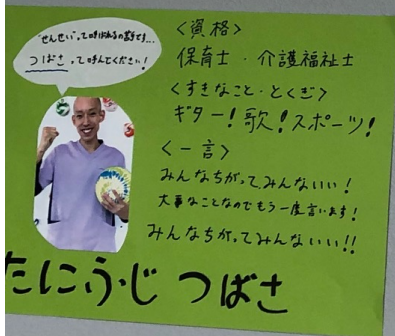 "せんせい"って呼ばれるの苦手です…
つばさって呼んでください!
<資格>
保育士・介護福祉士
<すきなこと・とくぎ>
ギター!歌!スポーツ!
<一言>
みんなちがってみんないい!
大事なことなのでもう一度言います!
みんなちがってみんないい!!
たにふじ つばさ